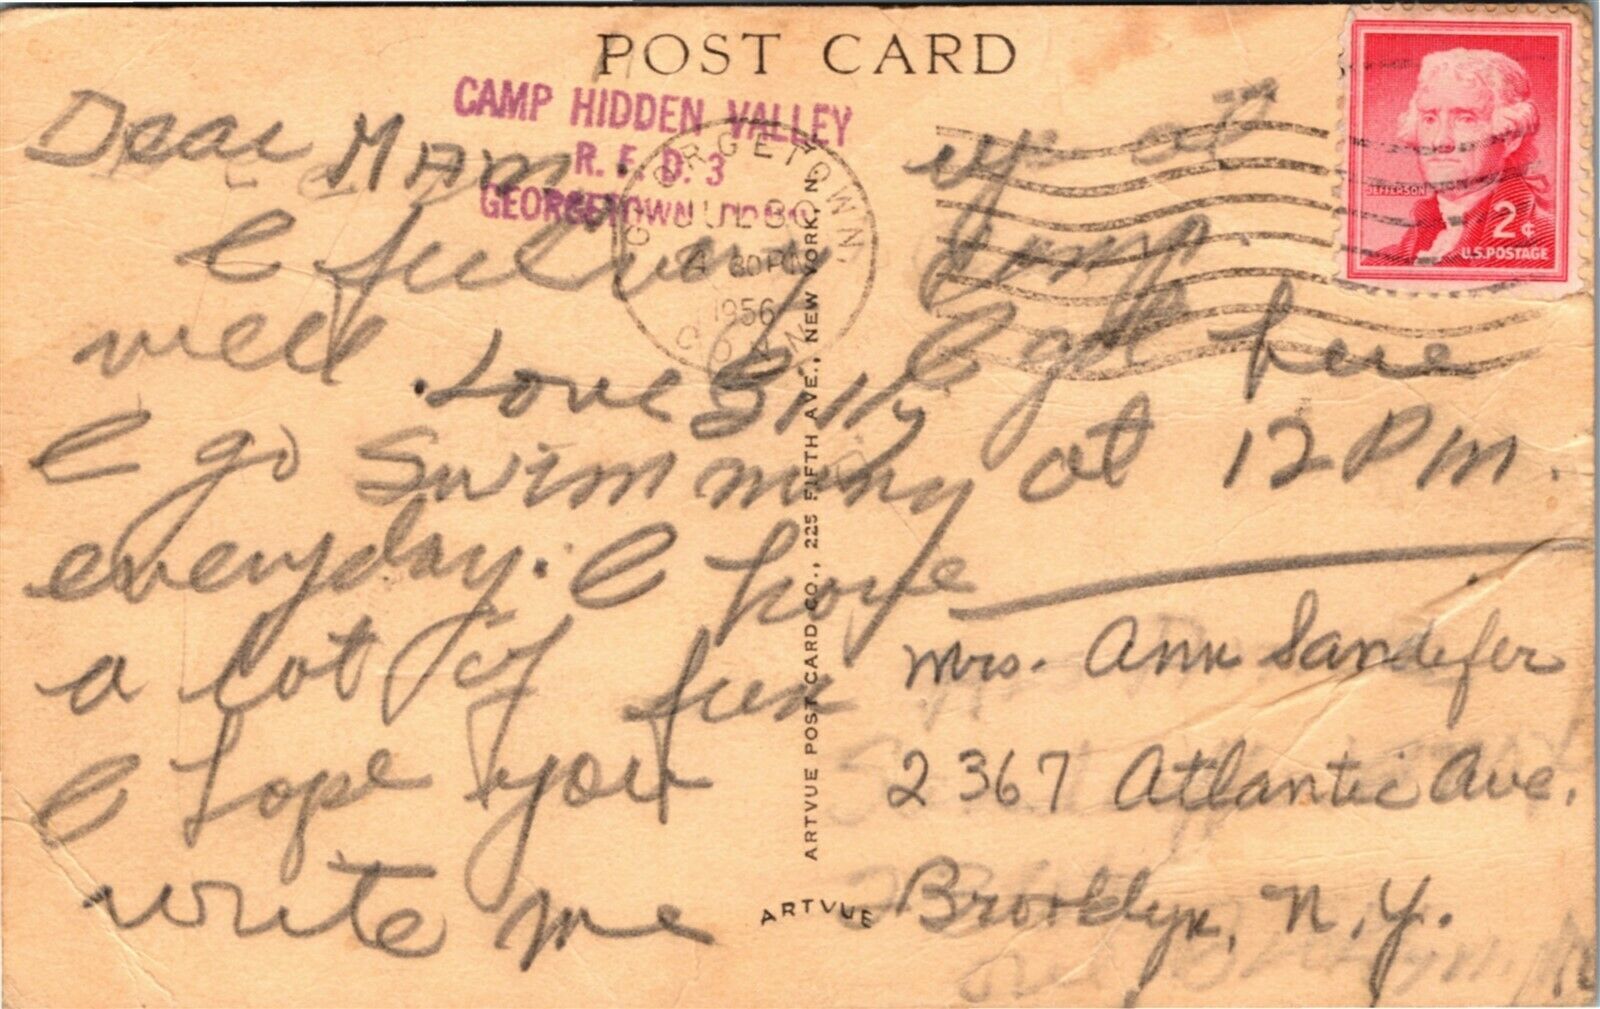 POST CARD
CAMP HIDDEN VALLEY
R. F. D. 3
GEORGETOWN, CONN.
GEORGETOWN,
JUL 30
4 30 PM
1956
CONN.
JEFFERSON
2¢
U.S. POSTAGE
Dear Mam
I feel very
well .Love Billy
I go Swimming
everyday. I have
a lot of fun
I hope you
write me
at
Camp.
I get here
at 12 PM.
Mrs. Ann Sandifer
2367 Atlantic Ave.
Brooklyn, N.Y.
ARTVUE POST CARD CO., 225 FIFTH AVE., NEW YORK, N.
ARTVUE